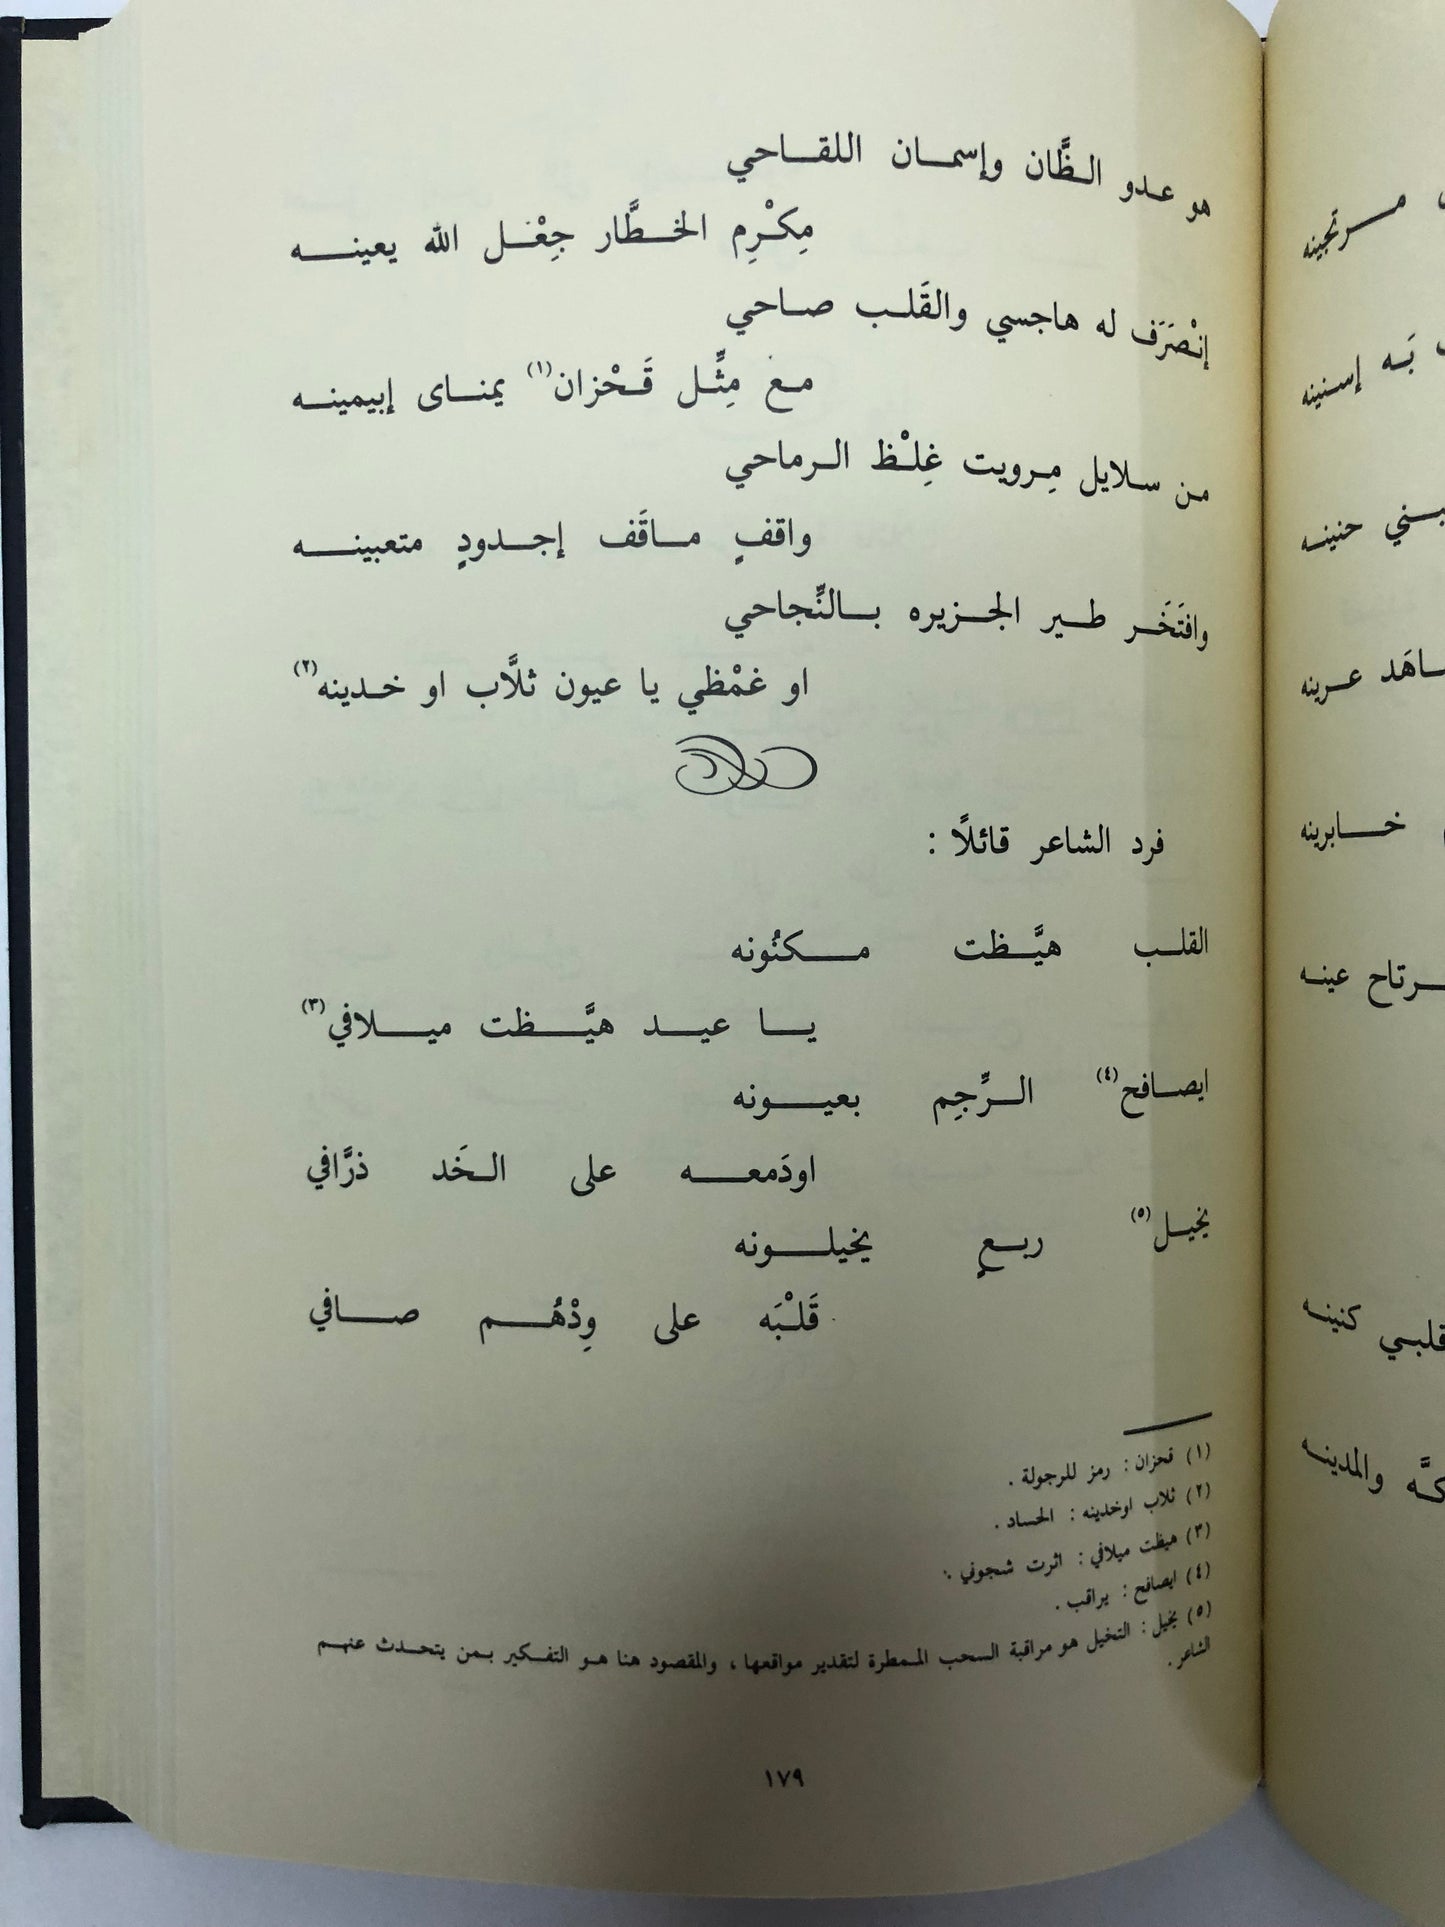 هو عدو الظَّان وإسمان اللقاحي
مِكْرِم الخطَّار جِعْل الله يعينه
إنْصَرَف له هاجسي والقَلب صاحي
مع مِثِّل قَحْزان(١) يمناى إبيمينه
من سلايل مِرويت غِلْظ الرماحي
واقفٍ ماقَف إجدودٍ متعبينه
وافتَخَر طير الجزيره بالنِّجاحي
او غمْظي يا عيون ثلَّاب او خدينه(٢)
فرد الشاعر قائلًا :
القلب هيَّظت مكنُونه
يا عيد هيَّظت ميلافي(٣)
ايصافح(٤) الرِّجِم بعيونه
اودَمعه على الخَد ذرَّافي
يخيل(٥) ربعٍ يخيلونه
قَلْبَه على وِدْهُم صافي
(١) قحزان : رمز للرجولة .
(٢) ثلاب اوخدينه : الحساد .
(٣) هيظت ميلافي : اثرت شجوني .
(٤) ايصافح : يراقب .
(٥) يخيل : التخيل هو مراقبة السحب الممطرة لتقدير مواقعها ، والمقصود هنا هو التفكير بمن يتحدث عنهم
الشاعر .
١٧٩
مرتجينه
بَه إسنينه
حنينه
عرينه
خابرينه
رتاح عينه
قلبي كنينه
والمدينه